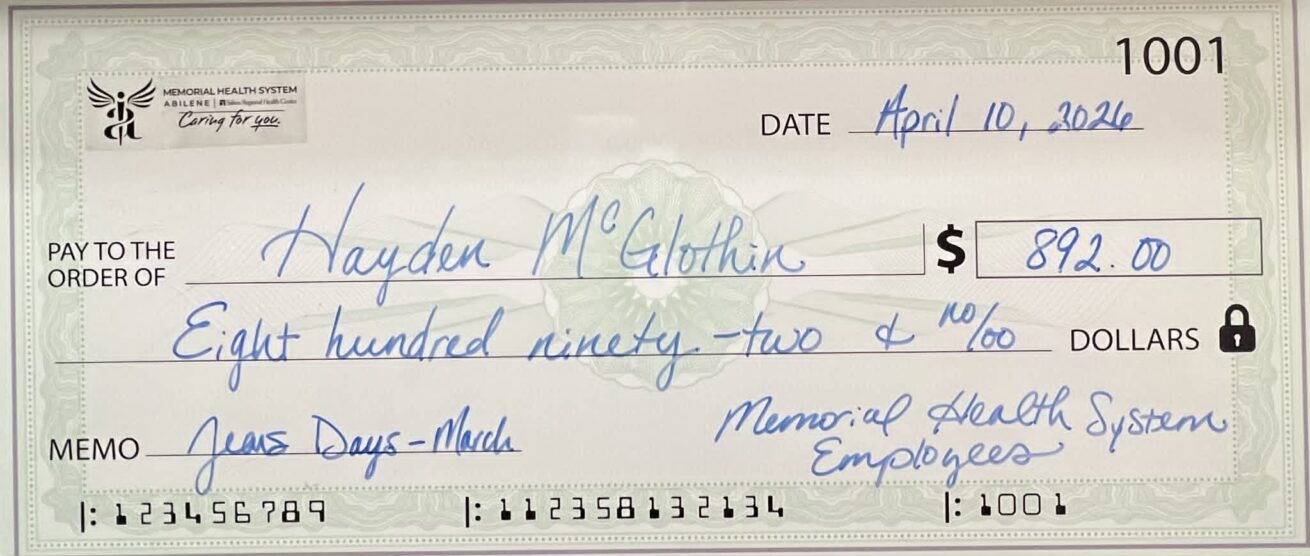 1001
MEMORIAL HEALTH SYSTEM
ABILENE | Salina Regional Health Center
Caring for you.
DATE April 10, 2026
PAY TO THE ORDER OF Hayden McGlothin $ 892.00
Eight hundred ninety-two & no/00 DOLLARS
MEMO Jeans Days - March
Memorial Health System
Employees
|: 123456789 |: 112358132134 |: 1001